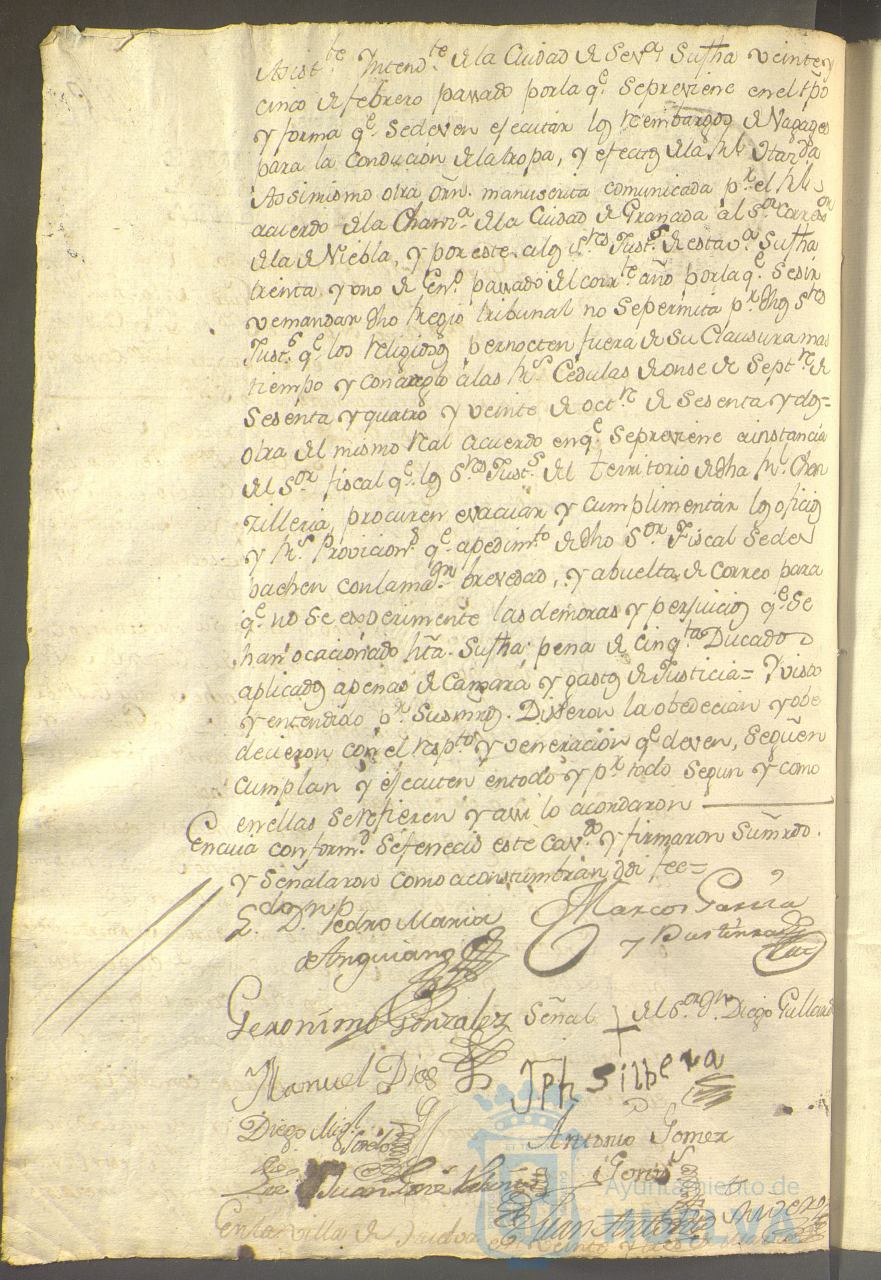 Asist.te Yntend.te de la Ciudad de Sev.a Su fha veinte y
cinco de febrero pasado por la q.e se previene en el tpo
y forma q.e se deven ejecutar los reembargos de Vagages
para la Conducion de la tropa, y efectos de la Rl
Assimismo otra Orn. manuscrita comunicada p.r el Rl
acuerdo de la Chan.a de la Ciudad de Granada al S.or Corre.or
de la de Niebla, y por este a los S.res Just.s de esta v.a Su fha
treinta y uno de En.o pasado del corr.te año por la q.e se sir
ve mandar dho Regio tribunal no se permita p.r dhos S.res
Just.s q.e los Religiosos pernocten fuera de su Clausura mas
tiempo y con arreglo a las R.s Cedulas de onse de Sept.re de
Sesenta y quatro y veinte de oct.re de Sesenta y dos=
otra del mismo Real acuerdo en q.e se previene a instancia
del S.or fiscal q.e los S.res Just.s del territorio de dha R.l Chan
zilleria, procuren evacuar y cumplimentar los oficios
y R.s Provicion.s q.e a pedim.to de dho S.or Fiscal se des
pachen con la ma.or brevedad, y a buelta de Correo para
q.e no se experimente las demoras y perjuicios q.e se
han ocacionado hta. Su fha: pena de cinq.ta Ducados
aplicados a penas de Camara y gastos de Justicia= Y visto
y entendido p.r Sus mrds. Dixeron la obedecian y obe
decieron con el resp.to y veneracion q.e deven, se gûen
cumplan y ejecuten en todo y p.r todo segun y como
en ellas se refieren y assi lo acordaron
En cuia conform.d se fenecio este cav.do y firmaron Su mrds.
y Señalaron como acostumbran doi fee=
D. Pedro Maria
de Anguiano
Marcos Garcia
y
Geronimo Gonzalez
Señal † del S.or Dn. Diego Gullard
Manuel Dios
Jph Silbera
Diego Mig.l
Antonio Gomez
Juan José
Juan Antonio
En la villa de Huelva en veinte y
Ayuntamiento de
HUELVA